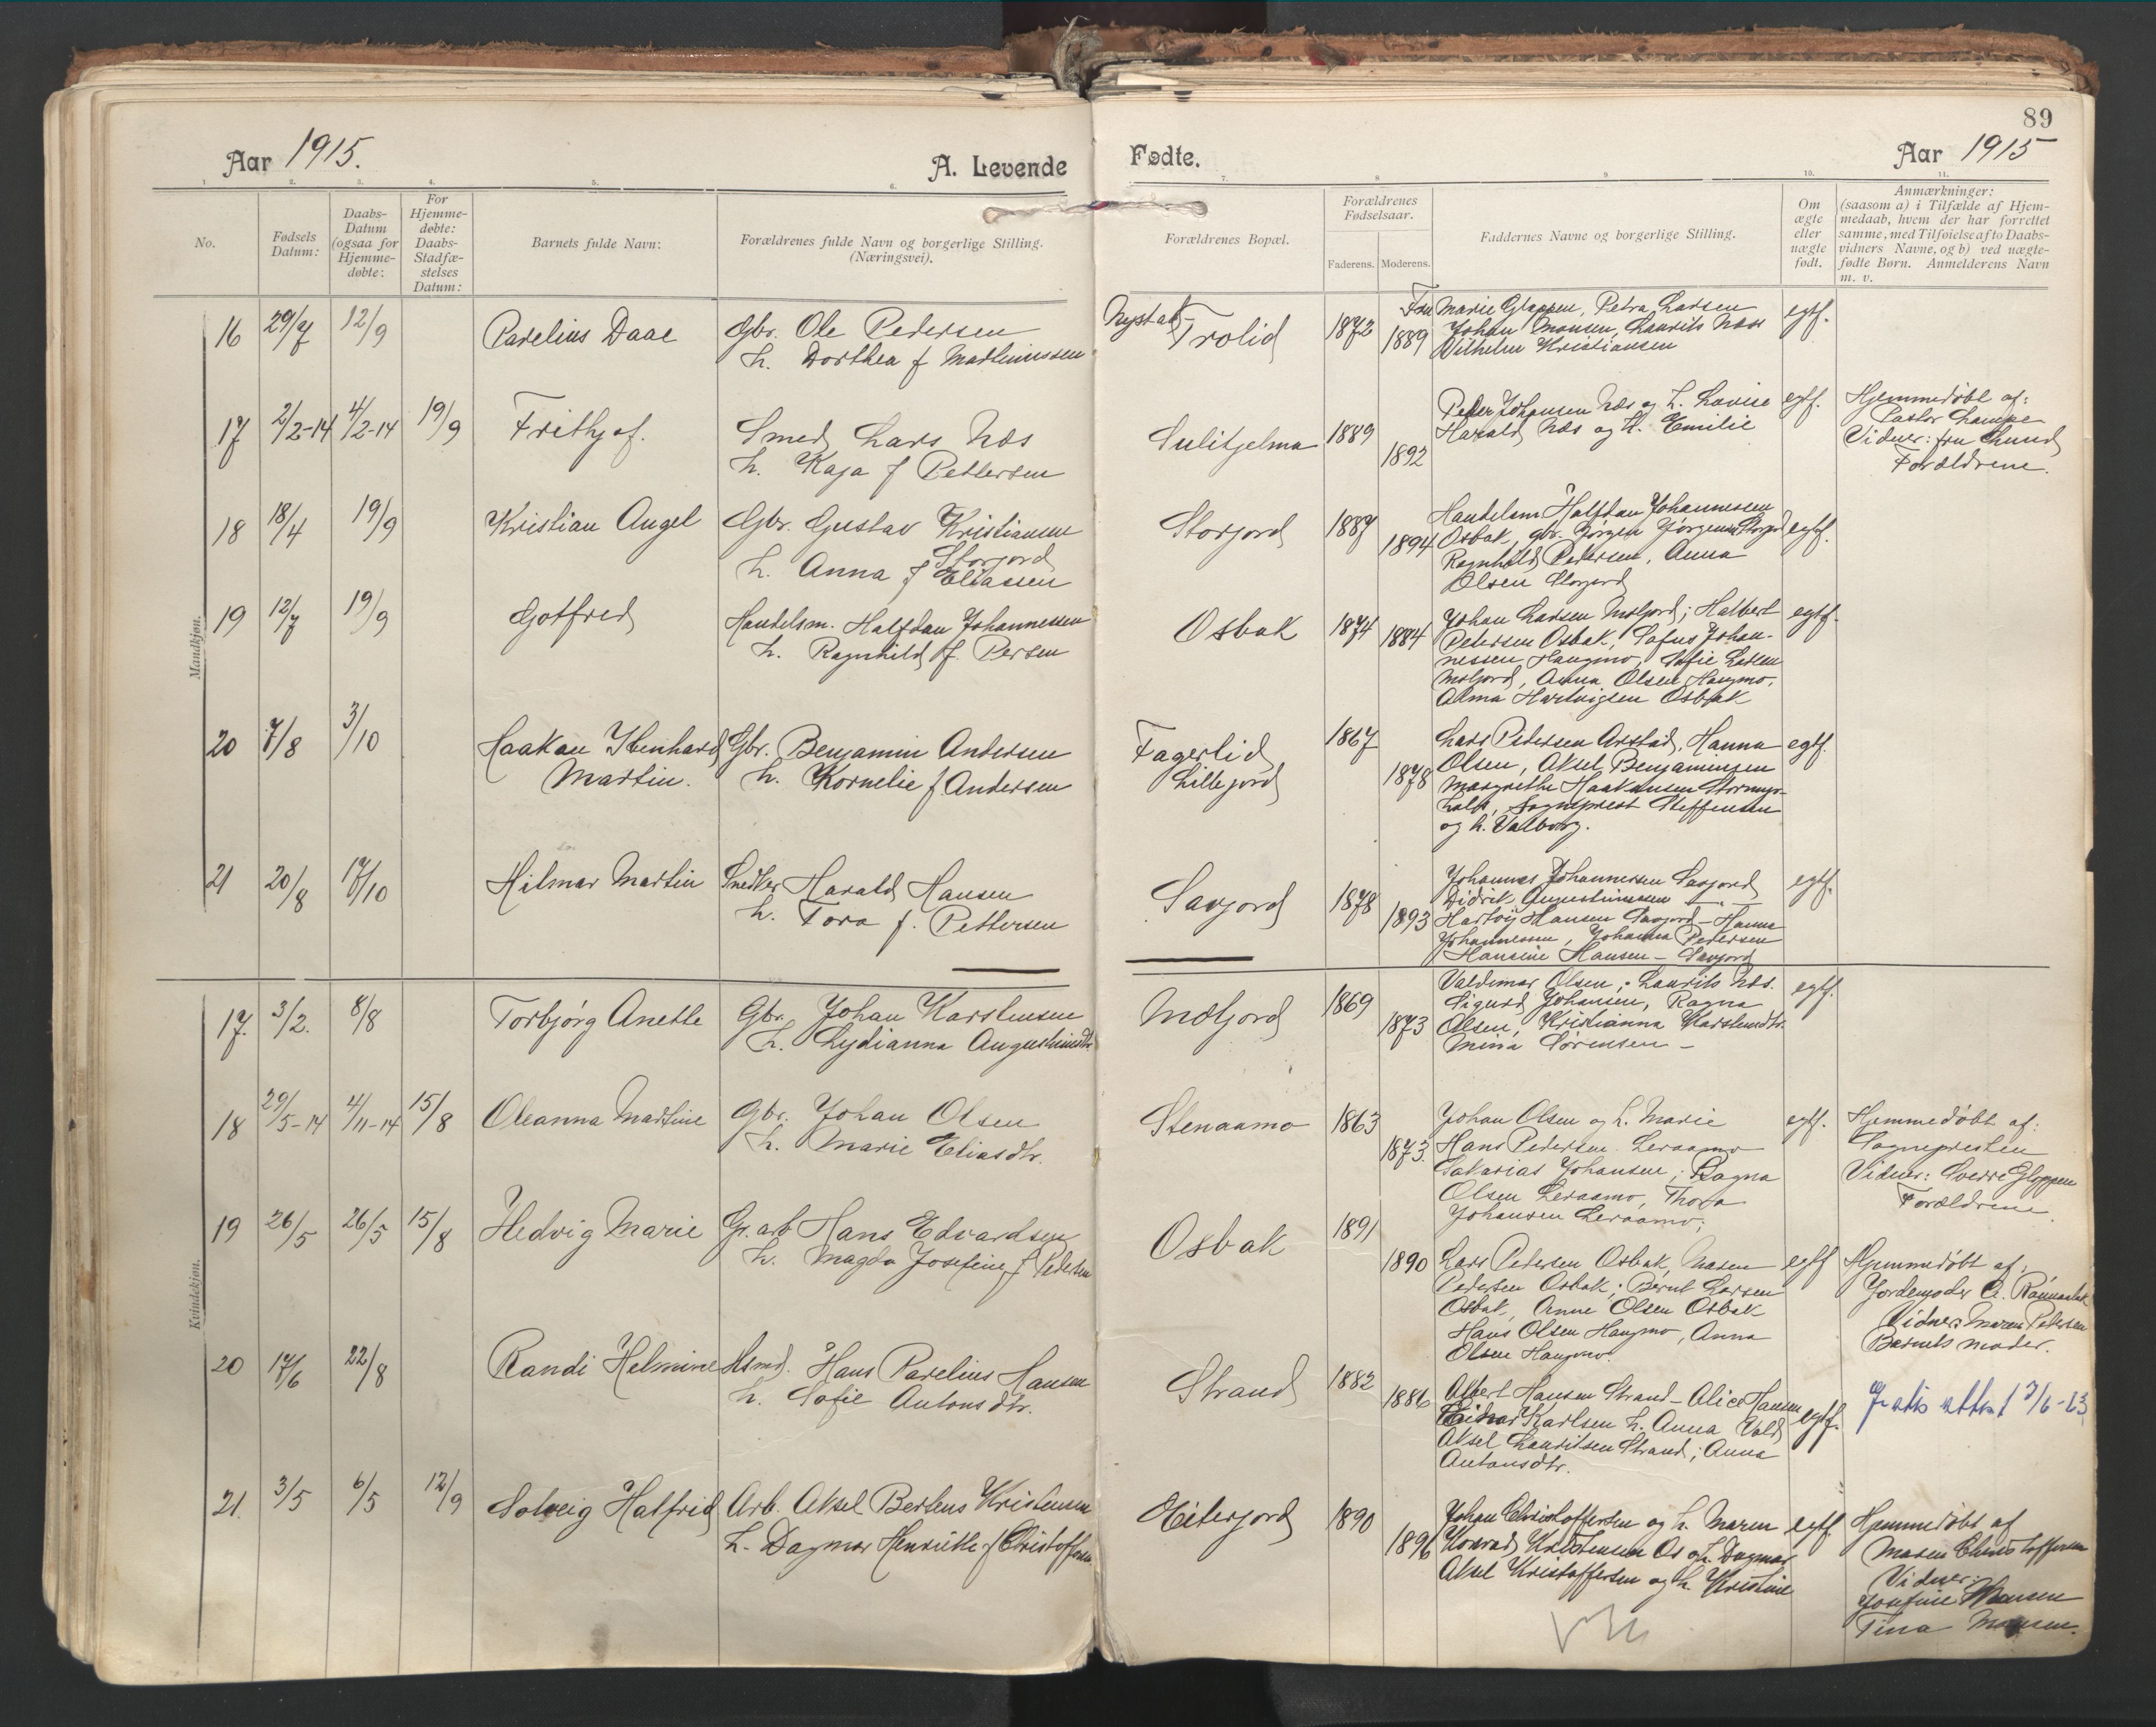 89
Aar 1915.
A. Levende
Fødte.
Aar 1915
1. 2. 3. 4. 5. 6. 7. 8. 9. 10. 11.
No.
Fødsels Datum:
Daabs-
Datum
(ogsaa for
Hjemme-
døbte:
For
Hjemme-
døbte:
Daabs-
Stadfæ-
stelses
Datum:
Barnets fulde Navn:
Forældrenes fulde Navn og borgerlige Stilling.
(Næringsvei).
Forældrenes Bopæl.
Forældrenes
Fødselsaar.
Faderens. Moderens.
Faddernes Navne og borgerlige Stilling.
Om
ægte
eller
uægte
født.
Anmærkninger:
(saasom a) i Tilfælde af Hjem-
medaab, hvem der har forrettet
samme, med Tilføielse af to Daabs-
vidners Navne, og b) ved uægte-
fødte Børn. Anmelderens Navn
m. v.
Mandkjøn.
16 29/7 12/9 Parelius Daae
Gbr. Ole Pedersen
h. Dorthea f Martinussen
Nystad Trolid 1872 1889
Fru Marie Gloppen, Petra Larsen
Johan Monsen, Laurits Næss
Vilhelm Kristiansen
egtf.
17 2/2-14 4/2-14 19/9 Frithjof.
Smed Lars Næs
h. Kaja f Pettersen
Sulitjelma 1889 1892
Peder Johansen Næs og h. Lovise
Harald Næs og h. Emilie
egtf.
Hjemmedøbt af:
Pastor Lampe
Vidner: fru Lund
Forældrene.
18 18/4 19/9 Kristian Angel
Gbr. Gustav Kristiansen
Storjord
h. Anna f Eliassen
Storjord 1887 1894
Handelsm Halfdan Johannessen
Osbak, gbr. Jørgen Jørgensen Storjord
Ragnhild Pedersen, Anna
Olsen Storjord
egtf.
19 12/7 19/9 Gotfred
Handelsm. Halfdan Johannessen
h. Ragnhild f. Persen
Osbak 1874 1884
Johan Larsen Moljord; Halbert
Petersen Osbak, Sofus Johan-
nessen Haugmo, Sofie Larsen
Moljord, Anna Olsen Haugmo,
Alma Hartvigsen Osbak
egtf.
20 7/8 3/10 Haakan Ibenhard
Martin.
Gbr. Benjamin Andersen
h. Kornelie f. Andersen
Fagerlid
Lillejord
1867 1878
Lars Pedersen Arstad, Hanna
Olsen, Aksel Benjaminsen
Margrethe Haakansen Stormyr-
halv, Sogneprest Steffensen
og h. Valborg.
egtf.
21 20/8 17/10 Hilmar Martin
Snedker Harald Hansen
h. Tora f. Pettersen
Savjord 1878 1893
Johannes Johannessen Savjord
Didrik Augustinussen
Hartvig Hansen Savjord - Hanna
Johannessen, Johanna Pedersen
Hansine Hansen - Savjord
egtf.
Kvindekjøn.
17. 3/2. 8/8 Torbjørg Anette
Gbr. Johan Karstensen
h. Lydianna Augustinusdtr.
Moljord 1869 1873
Valdemar Olsen; Laurits Næs.
Sigurd Johansen, Ragna
Olsen, Kristianna Karstensdtr.
Mina Sørensen -
egtf.
18 29/5-14 4/11-14 15/8 Oleanna Martine
Gbr. Johan Olsen
h. Marie Eliasdtr.
Stenaamo 1863 1873.
Johan Olsen og h. Marie
Hans Pedersen Leraamo
Sakarias Johansen; Ragna
Olsen Leraamo, Thora
Johansen Leraamo;
egtf.
Hjemmedøbt af:
Sognepresten
Vidner: Sverre Gloppen
Forældrene.
19 26/5 26/5 15/8 Hedvig Marie
Gr. arb Hans Edvardsen
h. Magda Josefine f Pedersen
Osbak 1891 1890
Lars Pedersen Osbak, Maren
Pedersen Osbak; Bernt Larsen
Osbak, Anne Olsen Osbak
Hans Olsen Haugmo, Anna
Olsen Haugmo.
egtf
Hjemmedøbt af:
Jordemoder
Vidner Maren Petersen
Barnets moder.
20 17/6 22/8 Randi Helmine
Hsmd. Hans Parelius Hansen
h. Sofie Antonsdtr.
Strand 1882 1886
Albert Hansen Strand - Alice Hansen
Eidvar Karlsen h. Anna Vold
Aksel Lauritsen Strand; Anna
Antonsdtr.
egtf.
Gratis attest 3/6-63
21. 3/5 6/5 12/9 Solveig Halfrid
Arb. Aksel Berteus Kristensen
h. Dagmar Henriette f Christoffersen
Eiterjord 1890 1896
Johan Christoffersen og h. Maren
Konrad Kristensen Os og h. Dagmar
Aksel Kristoffersen og h. Kristine
egtf
Hjemmedøbt af
Maren Christoffersen
Vidner:
Josefine Monsen
Tina Monsen.